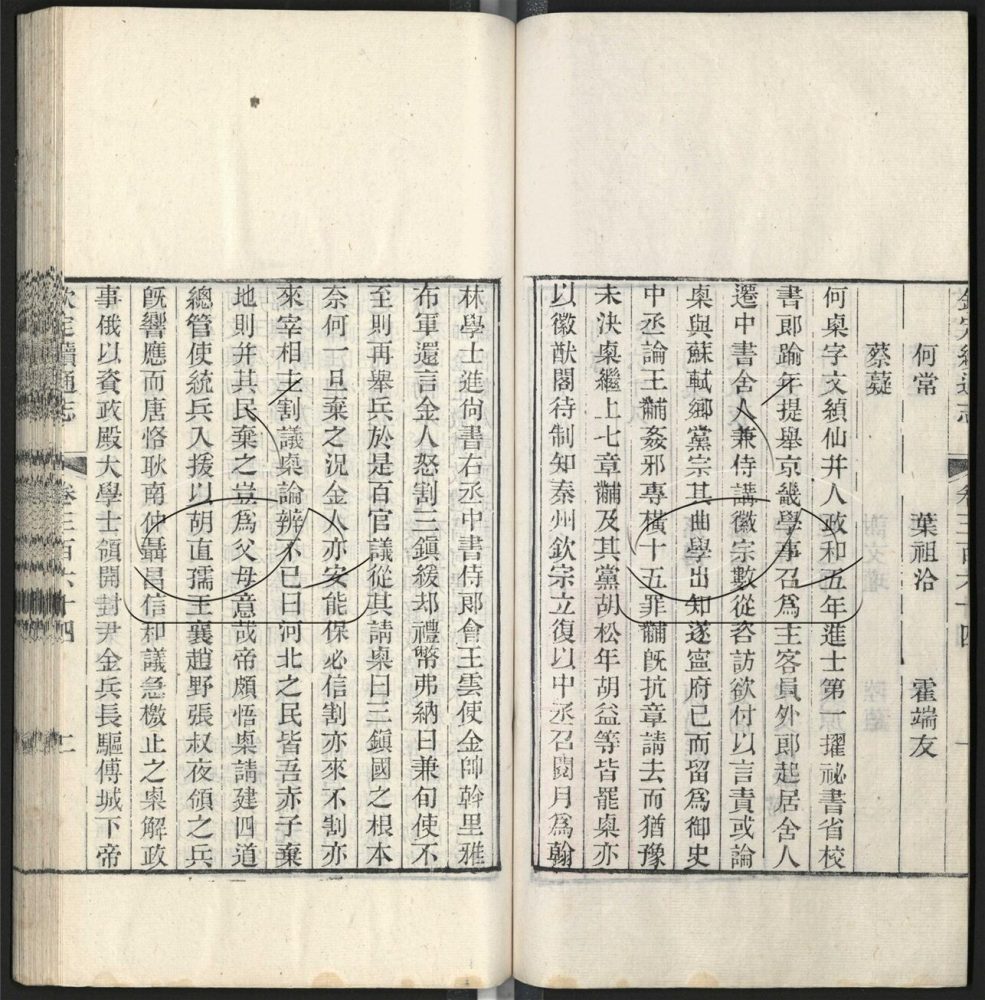 欽定續通志 卷三百六十四 一
何㮚 葉祖洽 霍端友
蔡薿
何㮚字文縝仙井人政和五年進士第一擢祕書省校
書郎踰年提舉京畿學事召爲主客員外郎起居舍人
遷中書舍人兼侍講徽宗數從咨訪欲付以言責或論
㮚與蘇軾鄉黨宗其曲學出知遂寧府已而留爲御史
中丞論王黼姦邪專橫十五罪黼旣抗章請去而猶豫
未決㮚繼上七章黼及其黨胡松年胡益等皆罷㮚亦
以徽猷閣待制知秦州欽宗立復以中丞召閱月爲翰
林學士進尙書右丞中書侍郎會王雲使金帥斡里雅
布軍還言金人怒割三鎭緩却禮幣弗納曰兼旬使不
至則再舉兵於是百官議從其請㮚曰三鎭國之根本
奈何一旦棄之況金人亦安能保必信割亦來不割亦
來宰相主割議㮚論辨不已曰河北之民皆吾赤子棄
地則并其民棄之豈爲父母意哉帝頗悟㮚請建四道
總管使統兵入援以胡直孺王襄趙野張叔夜領之兵
旣響應而唐恪耿南仲聶昌信和議急檄止之㮚解政
事俄以資政殿大學士領開封尹金兵長驅傅城下帝
欽定續通志 卷三百六十四 二